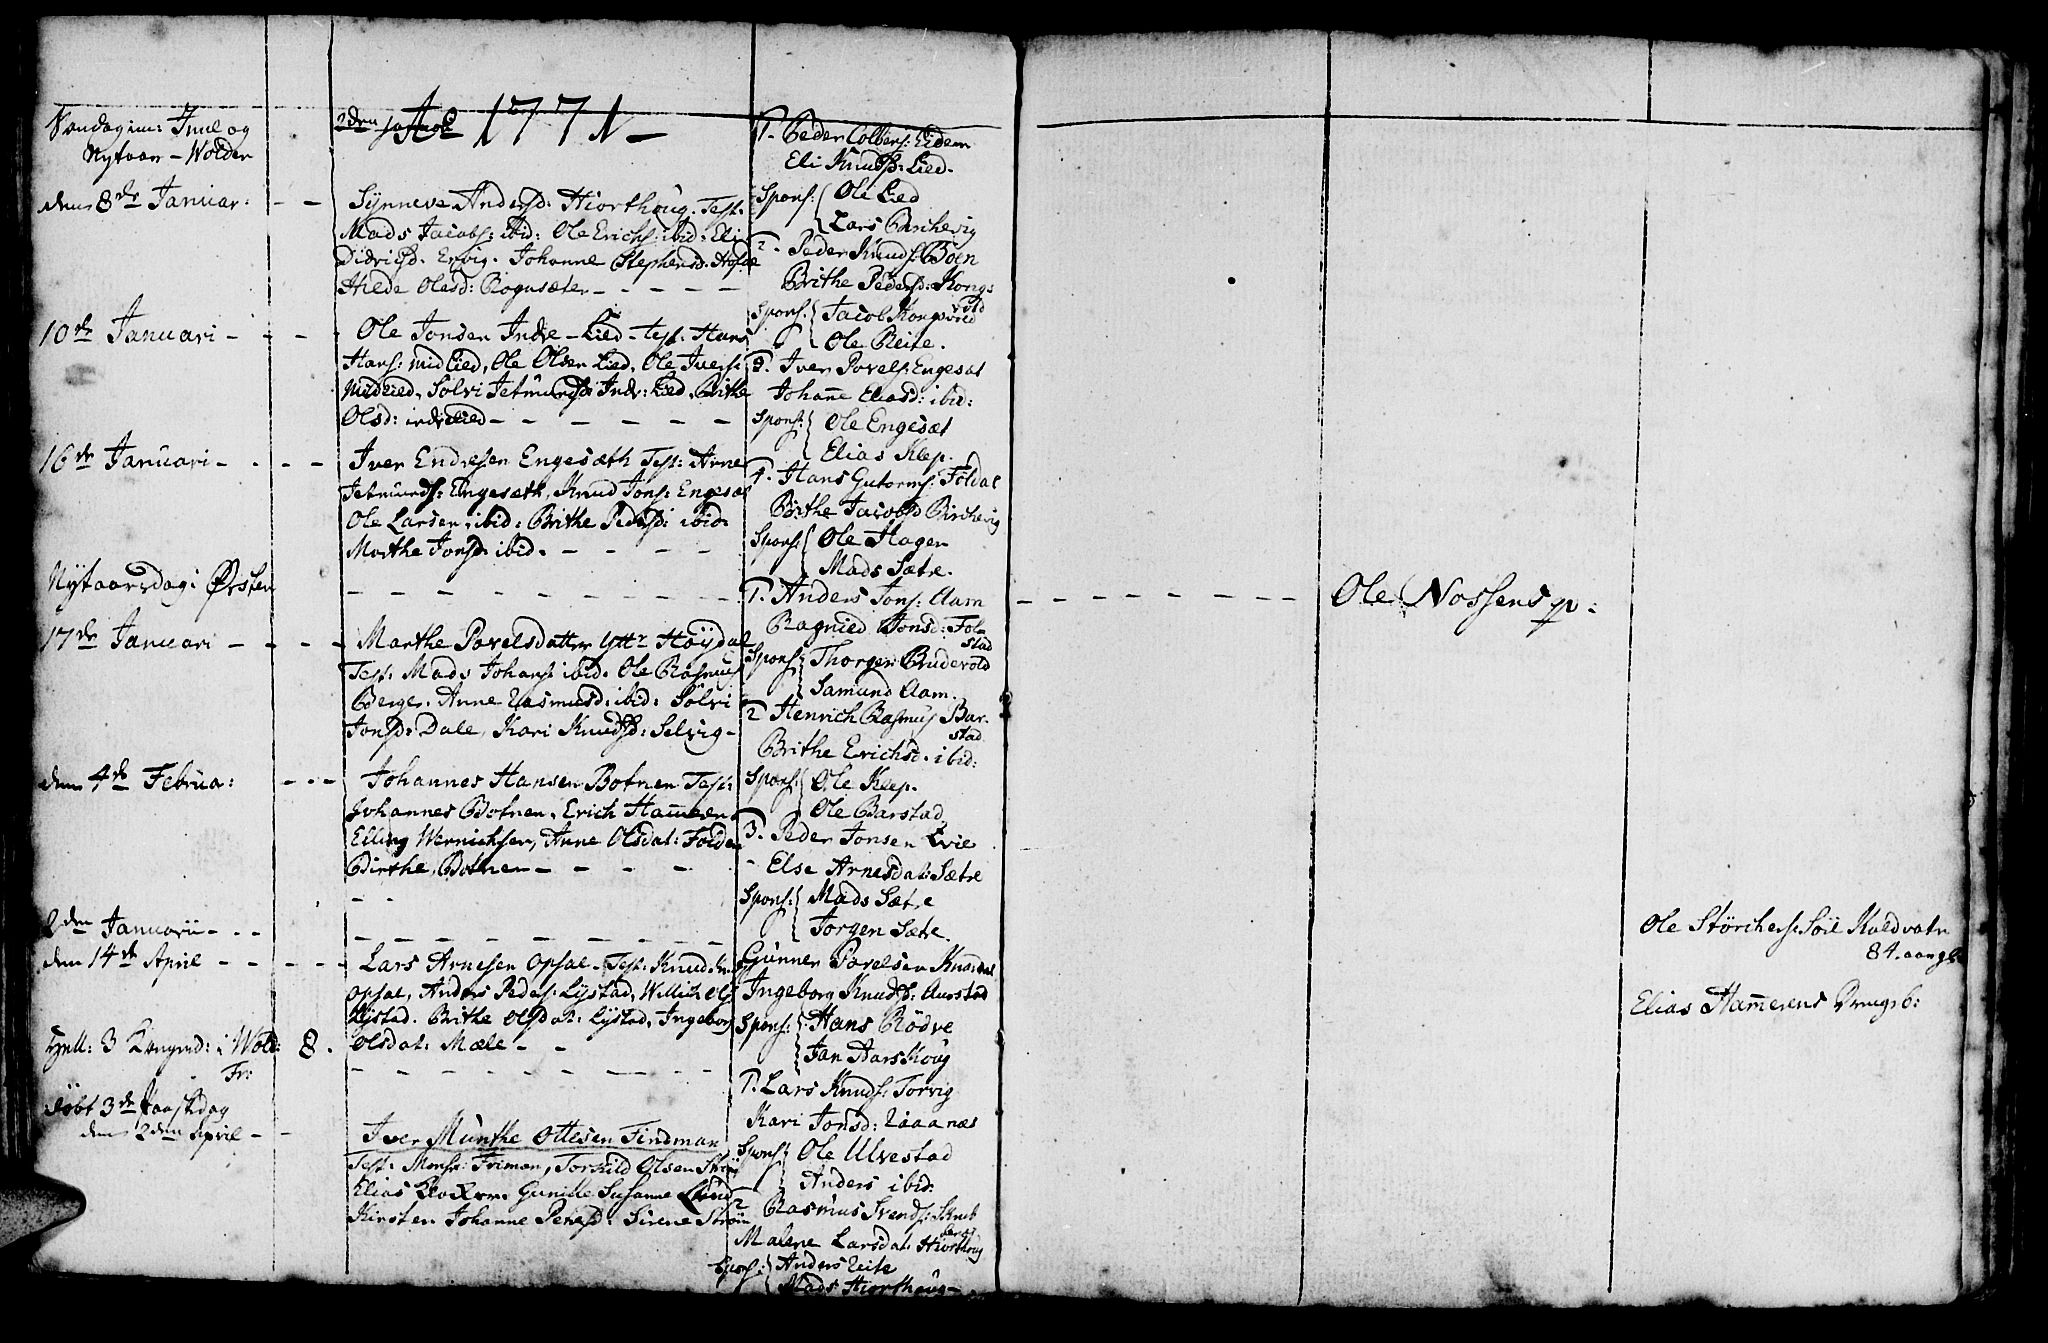 Aō 1771
Søndag im: Juul og
Nytaar - Wolden
den 8de Januar:
Synneve Andersd: Hiorthoug. Test.
Mads Jacobs: ibid: Ole Erichs: ibid: Eli
Didrichsd. Ervig. Johanne Stephensd.
Hilde Olesd: Rognsæter
10de Januari
Ole Jonsen Indre-Lied - Test: Hans
Hans: midlied, Ole Olsen Lied, Ole Ivers:
Midlied, Solvi Jetmunds Indr: Lied, Brithe
Olsd: indrelied
16de Januari
Iver Endresen Engesæth Test: Arne
Jetmunds: Engesæth, Knud Jons: Engesæt
Ole Larsen ibid: Brithe Pedersd: ibid:
Marthe Jonsd. ibid.
Nytaarsdag: Ørsten
17de Januari
Marthe Povelsdatter Yttr Høydal
Test: Mads Johans: ibid. Ole Rasmus
Berger. Anne Rasmusd: ibid: Solvi
Jonsd: Dale, Kari Knudsd: Selvig
den 4de Februa:
Johannes Hansen Botnen Test:
Johannes Botnen. Erich Hameren
Elling Wernichsen, Anne Olsdat: Folden
Birthe Botnen
2den Januarii
den 14de April
Lars Arnesen Opsal - Test: Knud
Opsal, Anders Peders: Lystad, Willich Ols
Lystad. Brithe Olsdat: Lystad, Ingeborg
Olsdat: Mæle
3 Kongerd: i Wold: 8.
Fr:
døbt 3de Paaskdag
den 2den April
Iver Munthe Ottesen Findman
Test. Monsr: Friman, Torkild Olsen Strøm
Elias Klokker. Gunille Susanne Lund
Kirsten Johanne Petersd: Sirene Strøm
1. Peder Colbens: Eidem
Eli Knudsd: Lied.
Spons: Ole Lied
Lars Birchevig
2. Peder Knuds: Boen
Brithe Pedersd: Kongsvold
Spons: Jacob Kongsvold
Ole Reite.
3. Iver Povels: Engesæt
Johane Eliasd: ibid:
Spons: Ole Engesæt
Elias Klep.
4. Hans Gutorms: Foldal
Birthe Jacobsd Birchevig
Spons: Ole Hagen
Mads Sætre.
1. Anders Jons: Aam
Ragnied Jonsd: Folstad
Spons: Thorgen: Brudevold
Samund Aam.
2 Henrich Rasmus Barstad
Brithe Erichsd. ibid:
Spons: Ole Klep.
Ole Barstad
3. Peder Jonsen Evie
Else Arnesdat: Sætre
Spons: Mads Sætre
Jorgen Sætre.
Gunner Povelsen
Ingeborg Knuds: Aurstad
Spons: Hans Rødve
Jan Aarskoug
1. Lars Knuds: Torvig
Kari Jonsd: Raaanæs
Spons: Ole Ulvestad
Anders ibid:
2 Rasmus Svends:
Malene Larsdat: Hiorthoug
Spons: Anders Reite
Mads Hiorthoug
Ole Nossens
Ole Størchers: Søll Kaldvatn
84. aar
Elias Hamerens